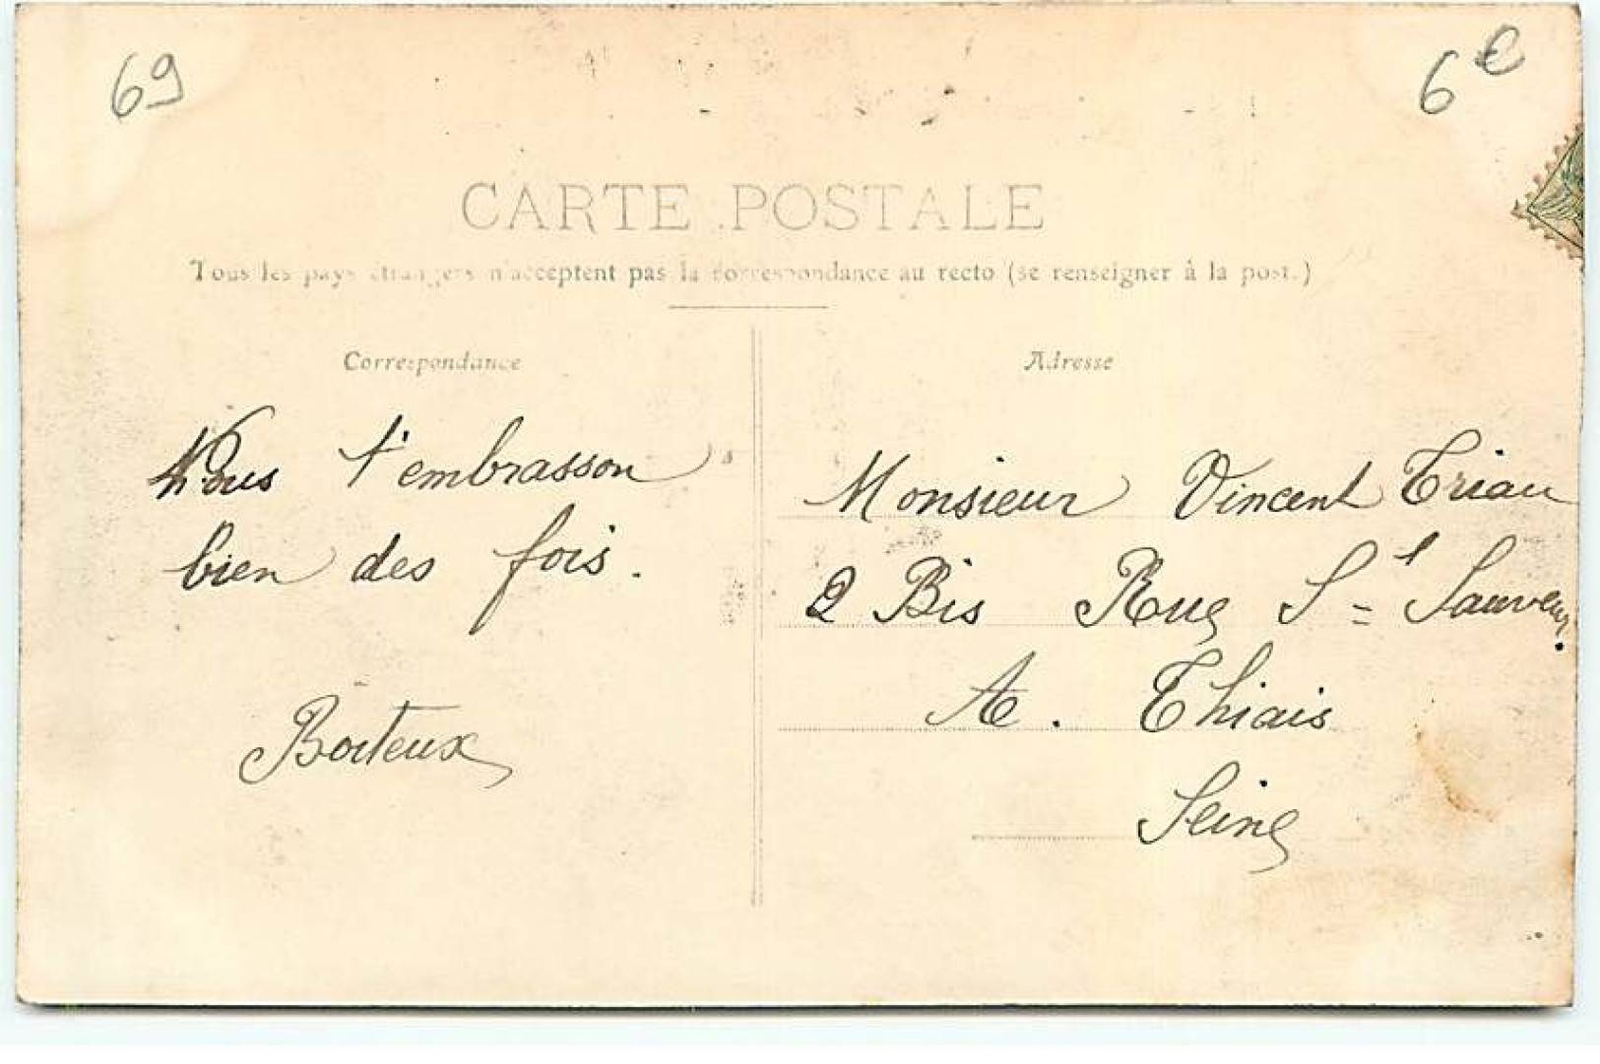 69
6€
CARTE POSTALE
Tous les pays étrangers n'acceptent pas la correspondance au recto (se renseigner à la poste.)
Correspondance
Nous t'embrasson
bien des fois.
Boiteux
Adresse
Monsieur Vincent Triau
2 Bis Rue St Sauveur.
A. Thiais
Seine